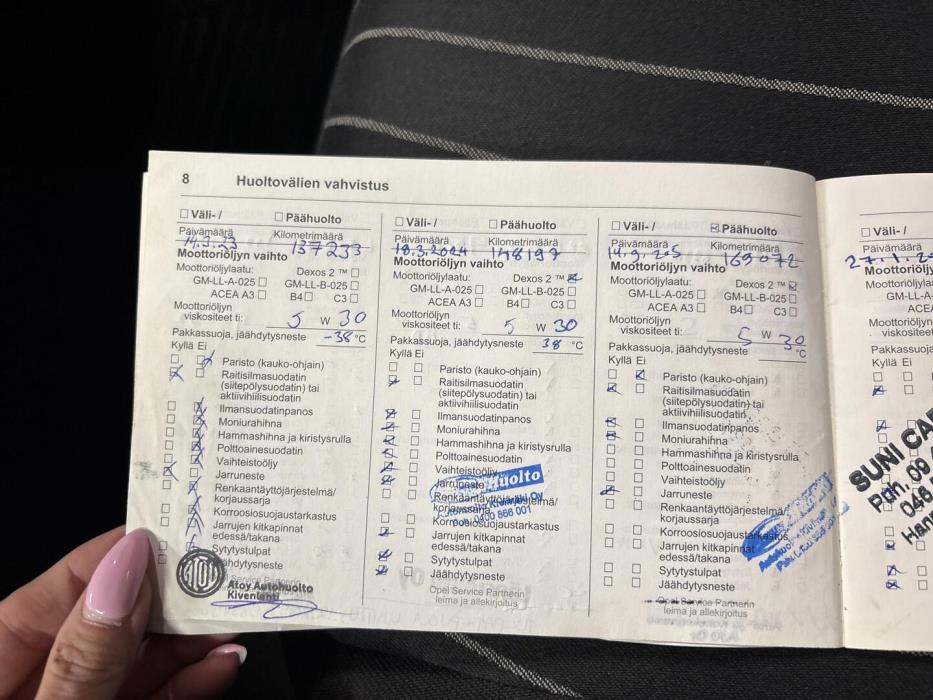 8 Huoltovälien vahvistus
Väli- / Päähuolto
Päivämäärä Kilometrimäärä
14.3.23 137233
Moottoriöljyn vaihto
Moottoriöljylaatu: Dexos 2 ™
GM-LL-A-025 GM-LL-B-025
ACEA A3 B4 C3
Moottoriöljyn
viskositeetti: 5 W 30
Pakkassuoja, jäähdytysneste -38 °C
Kyllä Ei
Paristo (kauko-ohjain)
Raitisilmasuodatin
(siitepölysuodatin) tai
aktiivihiilisuodatin
Ilmansuodatinpanos
Moniurahihna
Hammashihna ja kiristysrulla
Polttoainesuodatin
Vaihteistoöljy
Jarruneste
Renkaantäyttöjärjestelmä/
korjaussarja
Korroosiosuojaustarkastus
Jarrujen kitkapinnat
edessä/takana
Sytytystulpat
Jäähdytysneste
Atoy Autohuolto
Kivenlahti
Väli- / Päähuolto
Päivämäärä Kilometrimäärä
18.3.2024 148197
Moottoriöljyn vaihto
Moottoriöljylaatu: Dexos 2 ™
GM-LL-A-025 GM-LL-B-025
ACEA A3 B4 C3
Moottoriöljyn
viskositeetti: 5 W 30
Pakkassuoja, jäähdytysneste 38 °C
Kyllä Ei
Paristo (kauko-ohjain)
Raitisilmasuodatin
(siitepölysuodatin) tai
aktiivihiilisuodatin
Ilmansuodatinpanos
Moniurahihna
Hammashihna ja kiristysrulla
Polttoainesuodatin
Vaihteistoöljy
Jarruneste
huolto
Renkaantäyttöjärjestelmä/
korjaussarja
Oy
Puh. 0400 866 001
Korroosiosuojaustarkastus
Jarrujen kitkapinnat
edessä/takana
Sytytystulpat
Jäähdytysneste
Opel Service Partnerin
leima ja allekirjoitus
Väli- / Päähuolto
Päivämäärä Kilometrimäärä
169072
Moottoriöljyn vaihto
Moottoriöljylaatu: Dexos 2 ™
GM-LL-A-025 GM-LL-B-025
ACEA A3 B4 C3
Moottoriöljyn
viskositeetti: 5 W 30
Pakkassuoja, jäähdytysneste °C
Kyllä Ei
Paristo (kauko-ohjain)
Raitisilmasuodatin
(siitepölysuodatin) tai
aktiivihiilisuodatin
Ilmansuodatinpanos
Moniurahihna
Hammashihna ja kiristysrulla
Polttoainesuodatin
Vaihteistoöljy
Jarruneste
Renkaantäyttöjärjestelmä/
korjaussarja
Korroosiosuojaustarkastus
Jarrujen kitkapinnat
edessä/takana
Sytytystulpat
Jäähdytysneste
Opel Service Partnerin
leima ja allekirjoitus
Väli- /
Päivämäärä
27.1.20
Moottoriöljy
GM-LL-A
ACEA
Moottoriöljyn
viskositeet
Pakkassuoja
Kyllä Ei
SUNI CA
Puh. 09